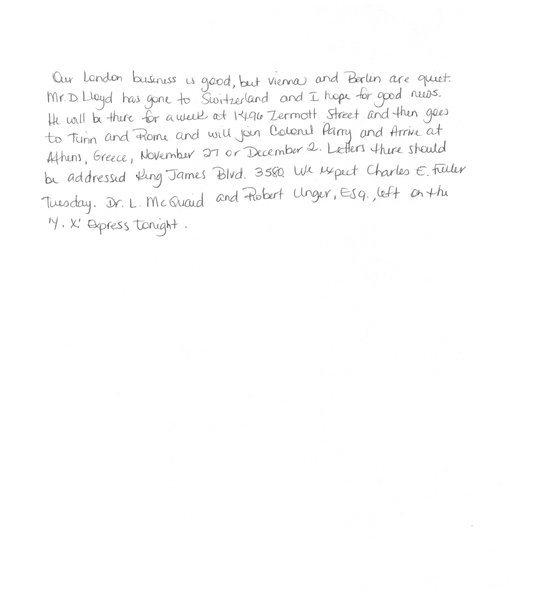 Our London business is good, but vienna and Berlin are quiet.
Mr. D. Lloyd has gone to Switzerland and I hope for good news.
He will be there for a week at 1496 Zermott Street and then goes
to Turin and Rome and will join Colonel Parry and Arrive at
Athens, Greece, November 27 or December 2. Letters there should
be addressed King James Blvd. 3580 We expect Charles E. Fuller
Tuesday. Dr. L. McQuaid and Robert Unger, Esq., left on the
'Y. X.' Express tonight.